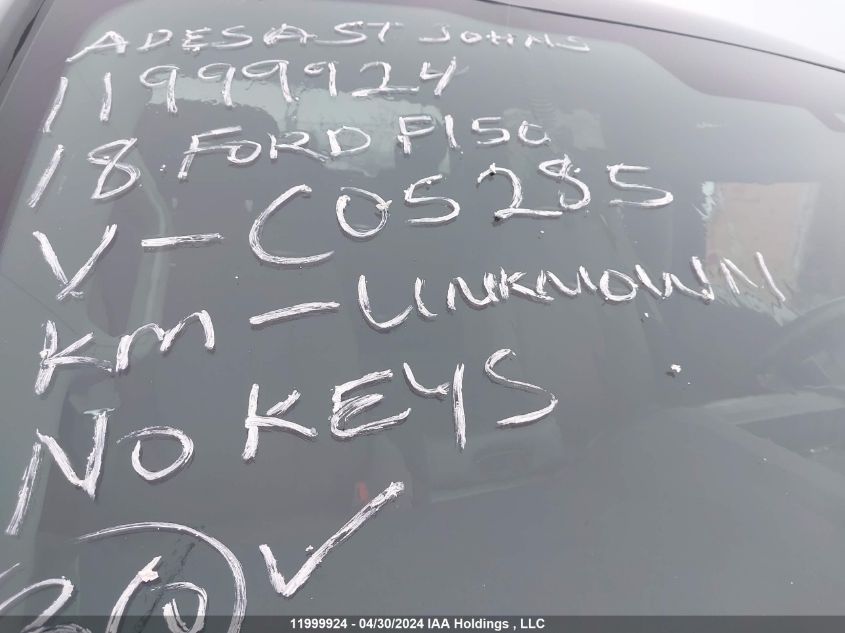 ADESA ST JOHNS
11999924
18 FORD F150
V - C05285
KM - UNKNOWN
NO KEYS
11999924 - 04/30/2024 IAA Holdings , LLC